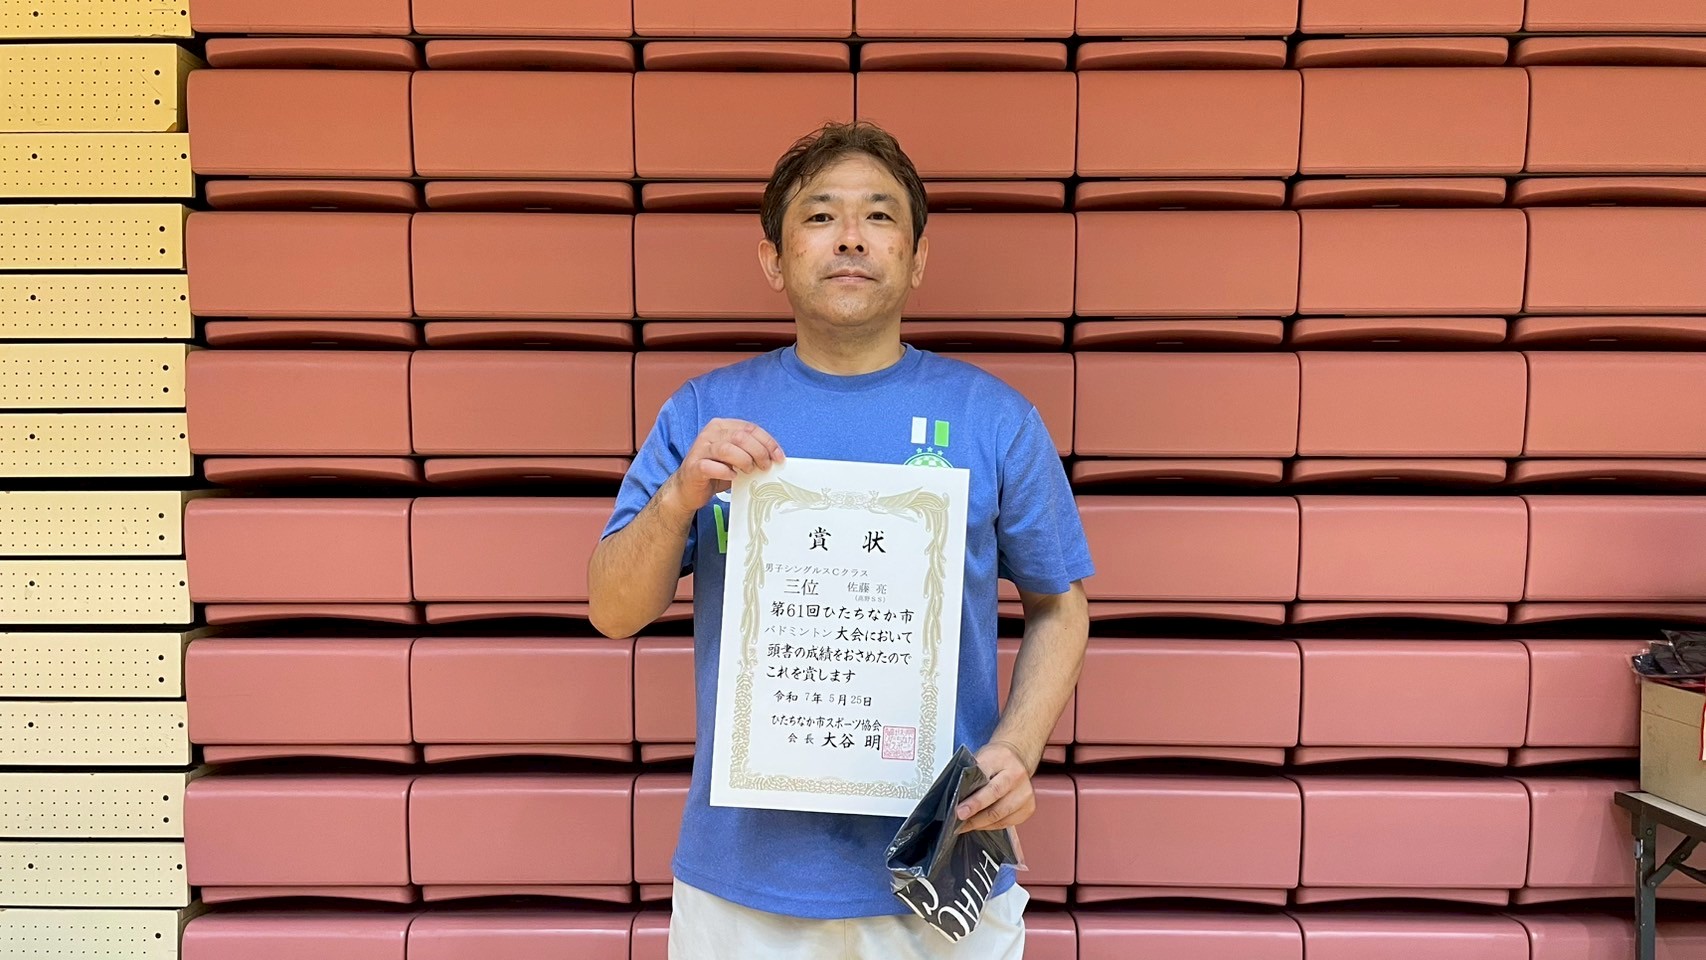 賞 状
男子シングルスCクラス
三位 佐藤 亮
(高野SS)
第61回ひたちなか市
バドミントン 大会において
頭書の成績をおさめたので
これを賞します
令和 7年 5月 25日
ひたちなか市スポーツ協会
会 長 大谷 明